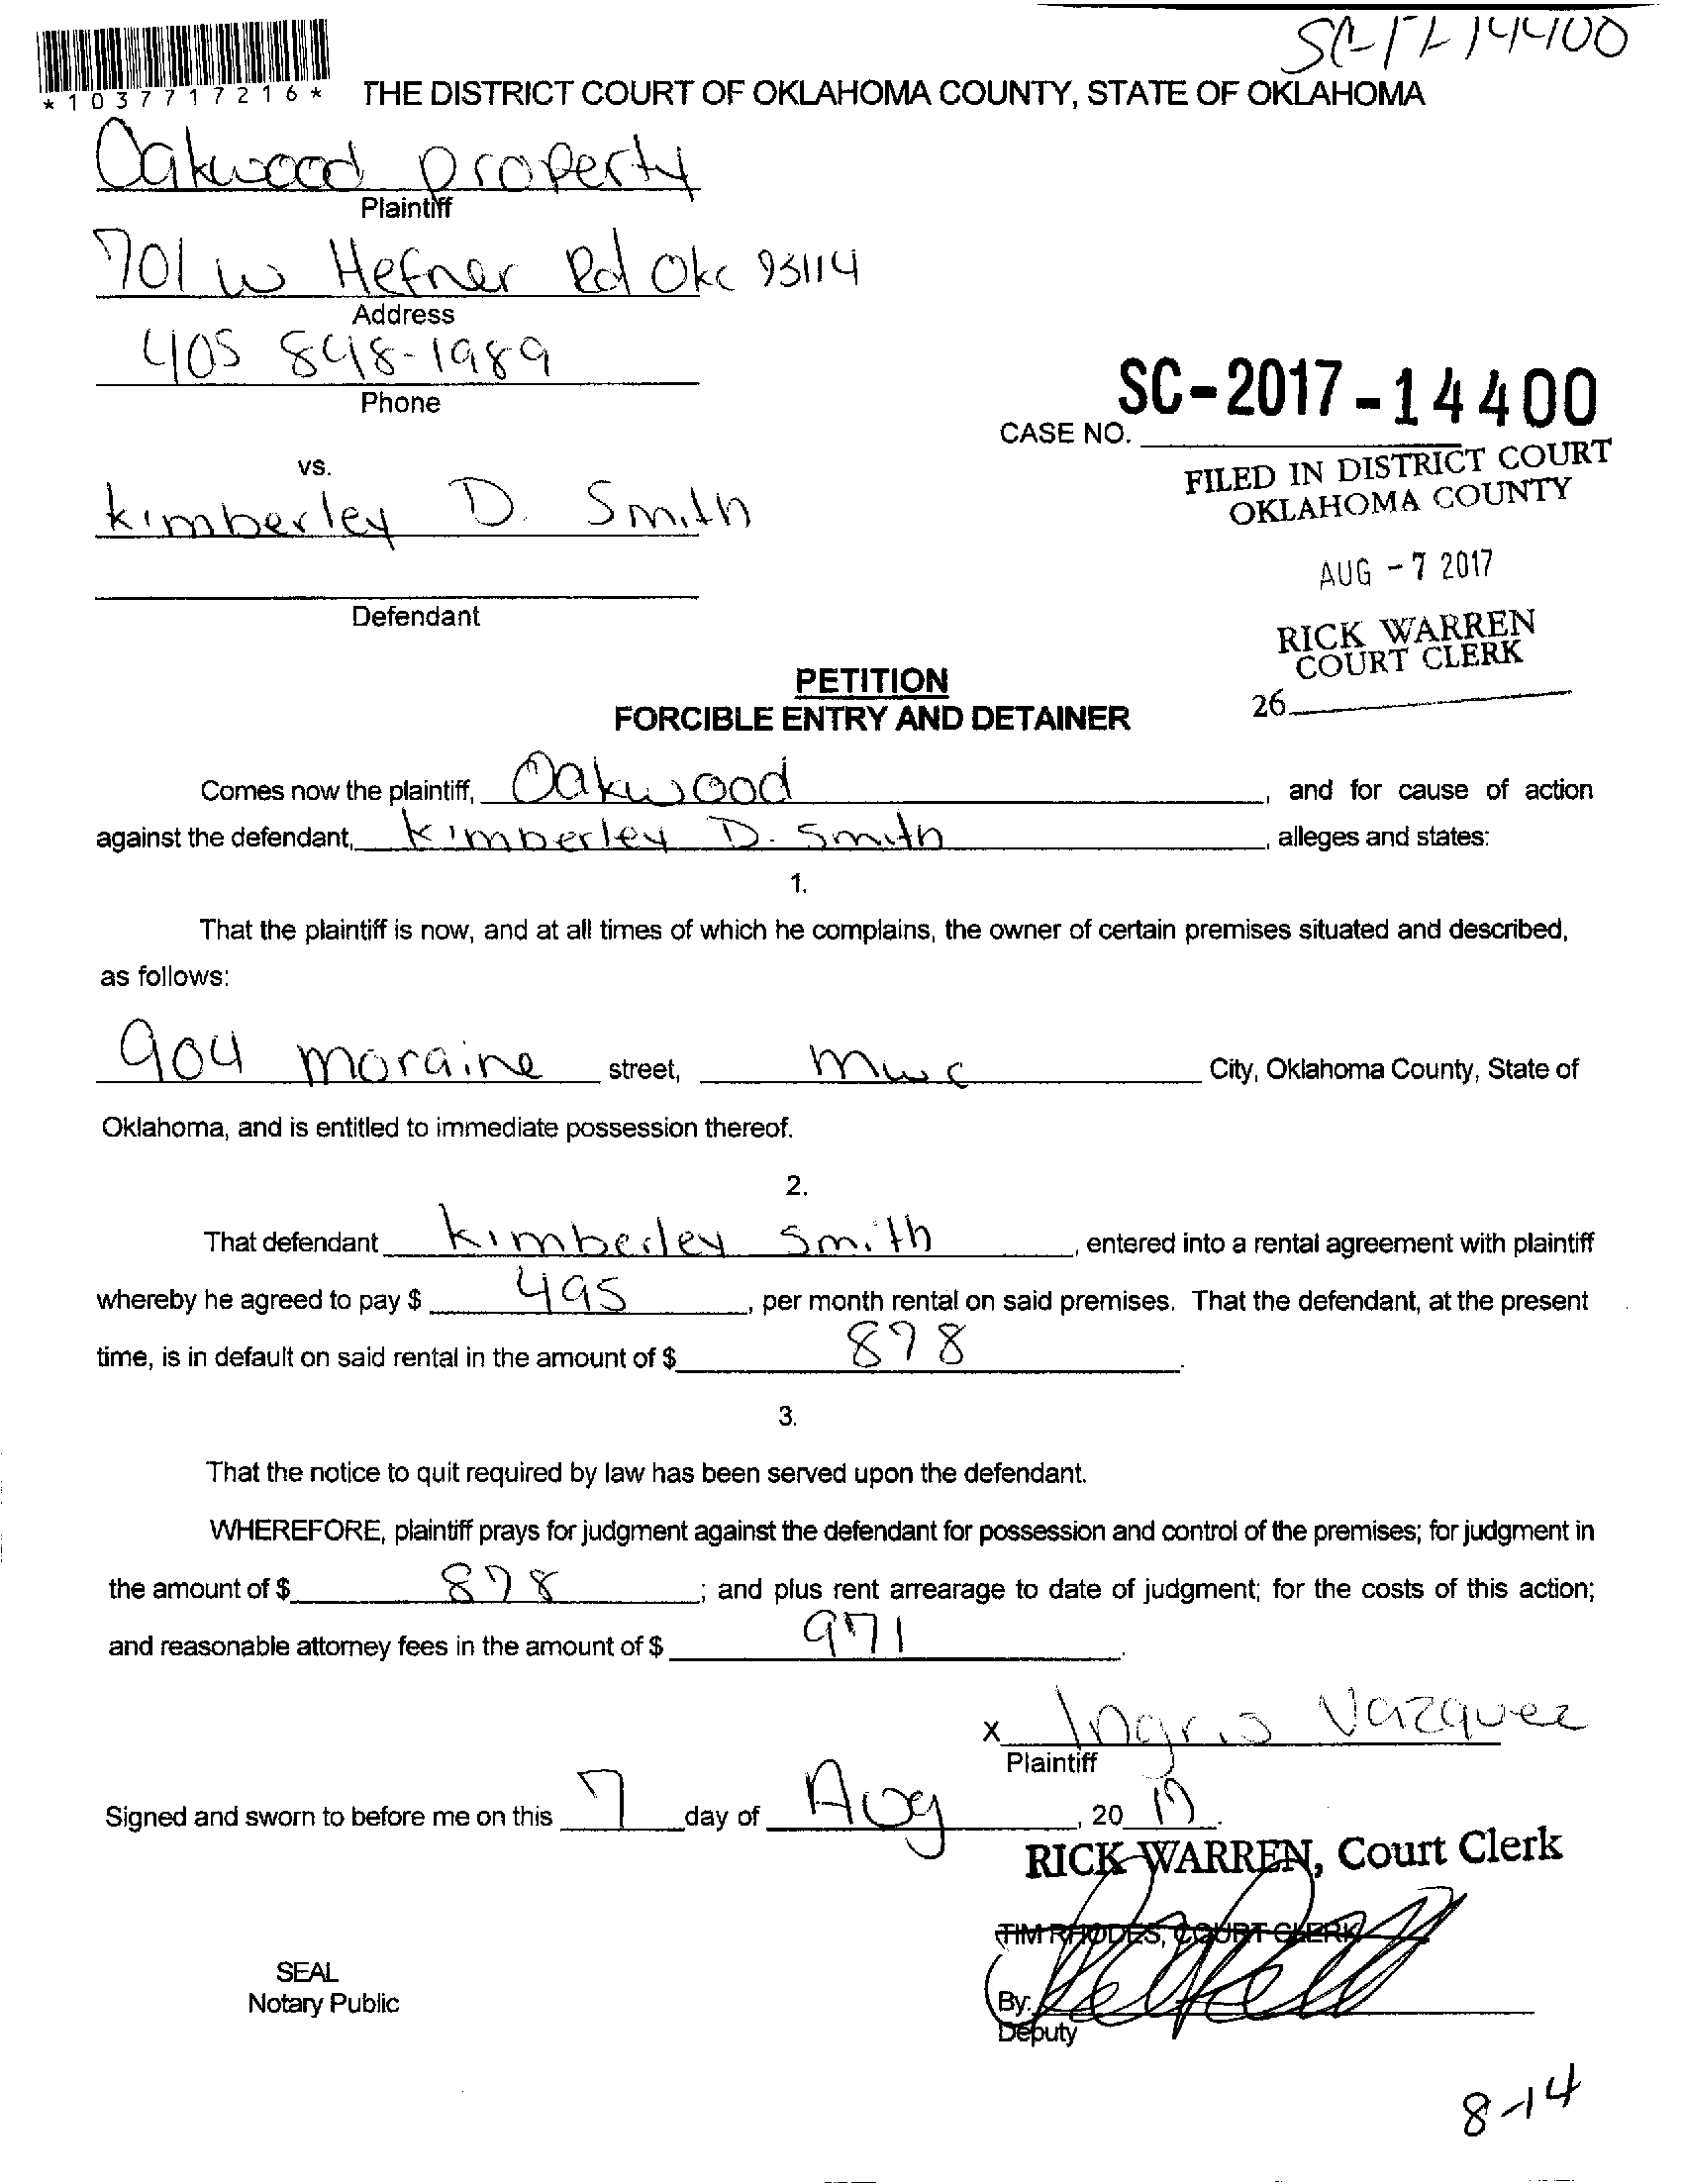 SC-17-14400
*1037717216*
THE DISTRICT COURT OF OKLAHOMA COUNTY, STATE OF OKLAHOMA
Oakwood property
Plaintiff
701 W Hefner Rd Okc 93114
Address
405 848-1989
Phone
SC-2017-14400
CASE NO.
FILED IN DISTRICT COURT
OKLAHOMA COUNTY
AUG - 7 2017
RICK WARREN
COURT CLERK
26
vs.
kimberley D. Smith
Defendant
PETITION
FORCIBLE ENTRY AND DETAINER
Comes now the plaintiff, Oakwood, and for cause of action
against the defendant, kimberley D. Smith, alleges and states:
1.
That the plaintiff is now, and at all times of which he complains, the owner of certain premises situated and described,
as follows:
904 moraine street, mwc City, Oklahoma County, State of
Oklahoma, and is entitled to immediate possession thereof.
2.
That defendant kimberley Smith, entered into a rental agreement with plaintiff
whereby he agreed to pay $ 495, per month rental on said premises. That the defendant, at the present
time, is in default on said rental in the amount of $ 878.
3.
That the notice to quit required by law has been served upon the defendant.
WHEREFORE, plaintiff prays for judgment against the defendant for possession and control of the premises; for judgment in
the amount of $ 878; and plus rent arrearage to date of judgment; for the costs of this action;
and reasonable attorney fees in the amount of $ 971.
x Ingris Vazquez
Plaintiff
Signed and sworn to before me on this 7 day of Aug, 20 17.
RICK WARREN, Court Clerk
TIM RHODES, COURT CLERK
SEAL
Notary Public
By:
Deputy
8-14